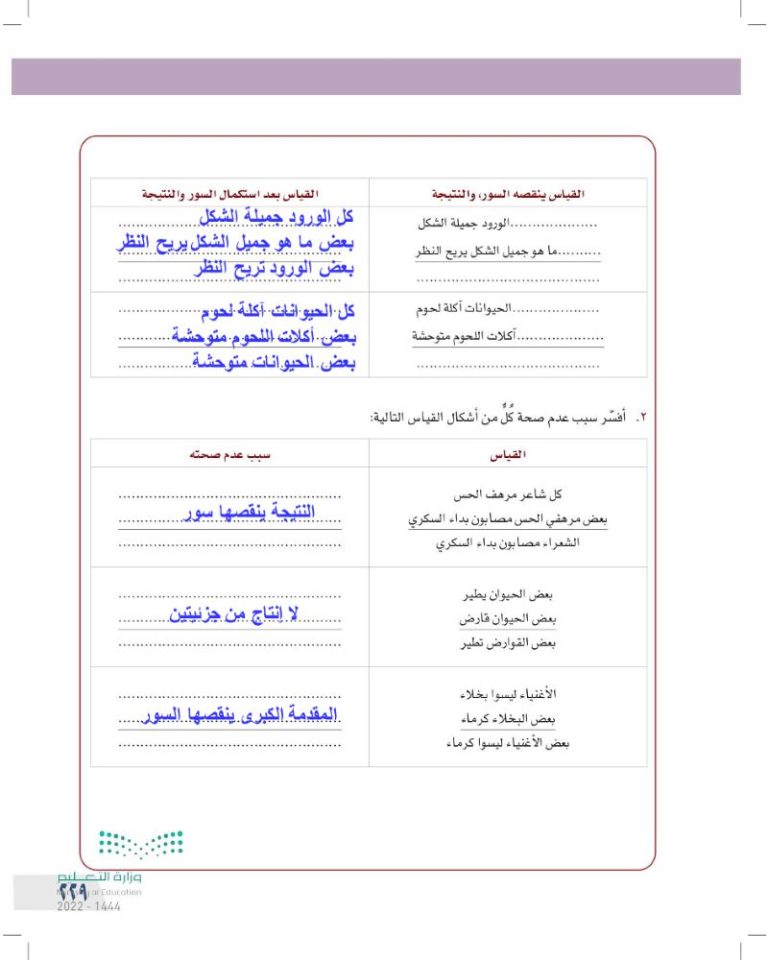 القياس ينقصه السور، والنتيجة
القياس بعد استكمال السور والنتيجة
....................الورود جميلة الشكل
..........ما هو جميل الشكل يريح النظر
..........................................
كل الورود جميلة الشكل
بعض ما هو جميل الشكل يريح النظر
بعض الورود تريح النظر
....................الحيوانات آكلة لحوم
....................آكلات اللحوم متوحشة
..........................................
كل الحيوانات آكلة لحوم
بعض أكلات اللحوم متوحشة
بعض الحيوانات متوحشة
٢. أفسّر سبب عدم صحة كُلٍّ من أشكال القياس التالية:
القياس
سبب عدم صحته
كل شاعر مرهف الحس
بعض مرهفي الحس مصابون بداء السكري
الشعراء مصابون بداء السكري
النتيجة ينقصها سور
بعض الحيوان يطير
بعض الحيوان قارض
بعض القوارض تطير
لا إنتاج من جزئيتين
الأغنياء ليسوا بخلاء
بعض البخلاء كرماء
بعض الأغنياء ليسوا كرماء
المقدمة الكبرى ينقصها السور
وزارة التعليم
Ministry of Education
٢٢٩
2022 - 1444